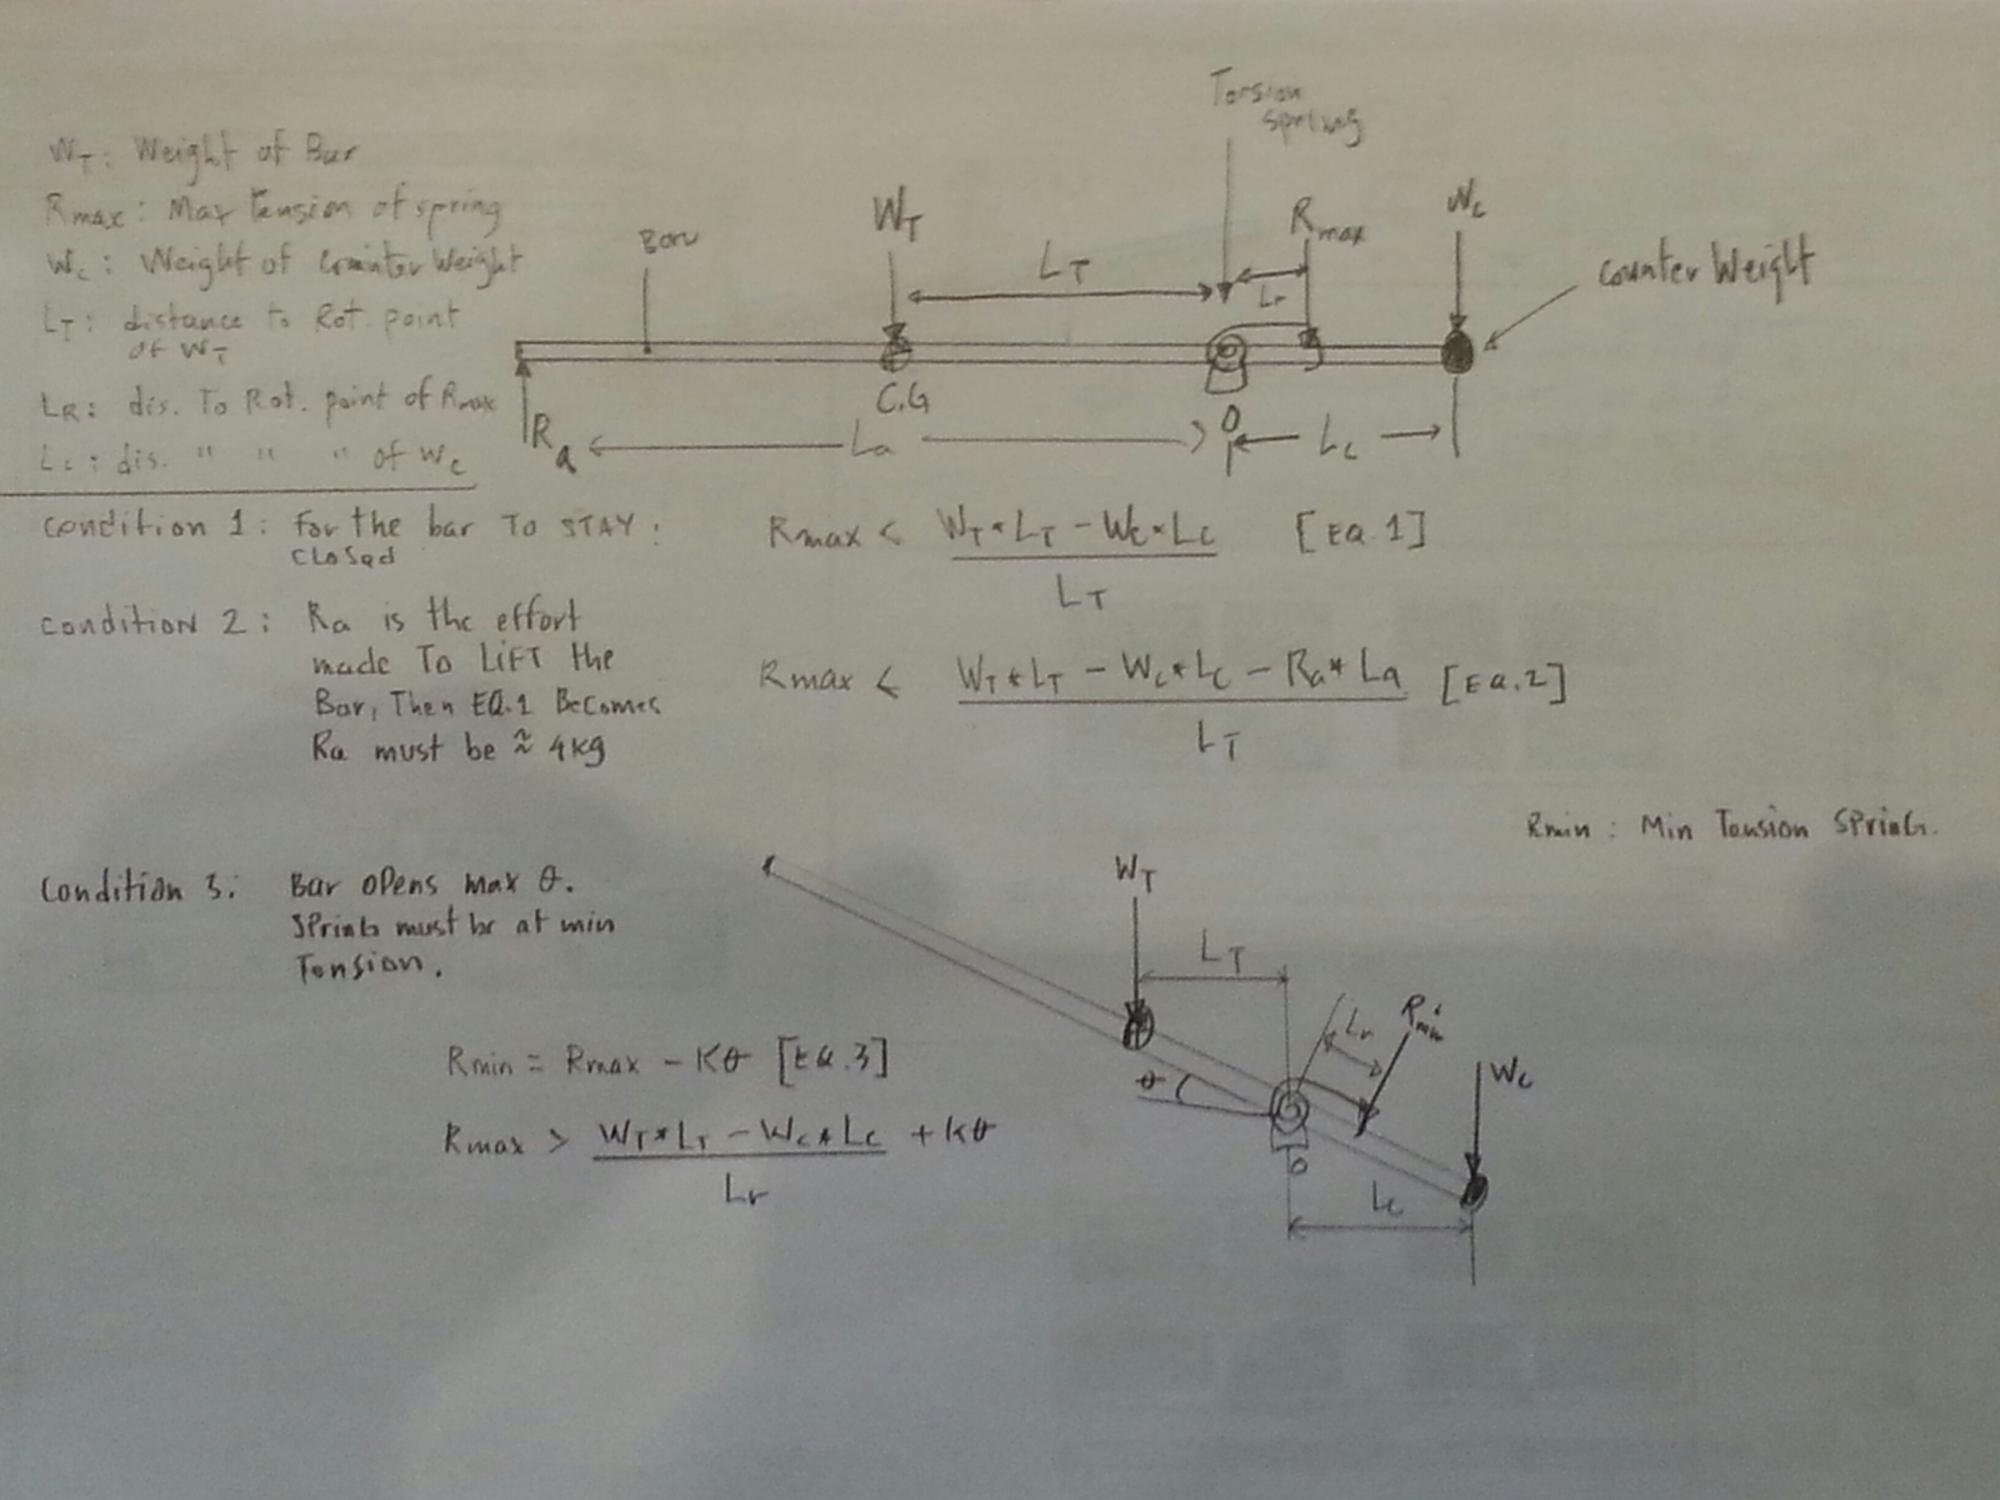 Torsion
spring
WT: Weight of Bar
Rmax: Max Tension of spring
Wc: Weight of Counter Weight
LT: distance to Rot. point
of WT
LR: dis. To Rot. point of Rmax
Lc: dis. " " " of Wc
Boru
WT
LT
Rmax
Lr
Wc
Counter Weight
C.G
Ra
La
O
Lc
Condition 1: For the bar TO STAY:
CLOSED
Rmax < (WT*LT - Wc*Lc) / LT [EQ.1]
Condition 2: Ra is the effort
made To LIFT the
Bar, Then EQ.1 Becomes
Ra must be ≈ 4kg
Rmax < (WT*LT - Wc*Lc - Ra*La) / LT [EQ.2]
Rmin: Min Tension SPrinG.
Condition 3: Bar OPens max θ.
SPrinG must be at min
Tension.
Rmin = Rmax - Kθ [EQ.3]
Rmax > (WT*LT - Wc*Lc) / Lr + Kθ
WT
LT
Lr
Rmin
Wc
θ
O
Lc